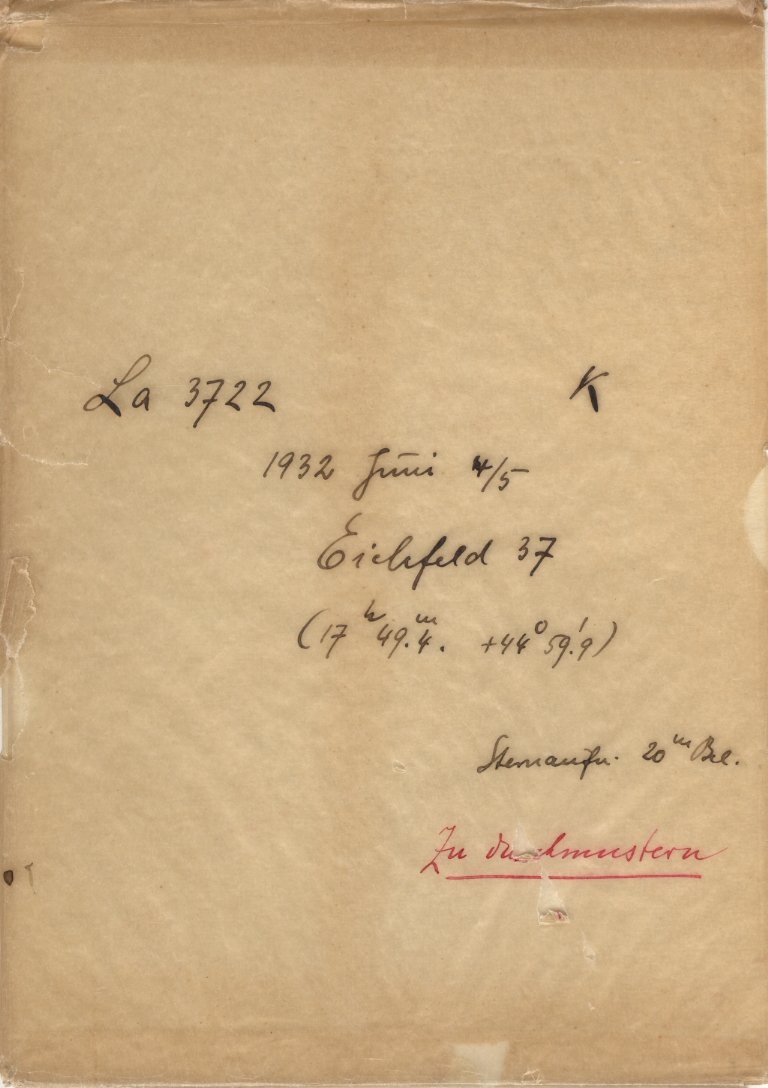 La 3722 K
1932 Juni 4/5
Eichfeld 37
(17ʰ 49.ᵐ4. +44° 59.′9)
Sternaufn. 20ᵐ Bel.
Zu durchmustern